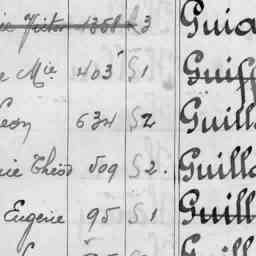 ie Victor 1358 R3 Guia
e Mie 403 G1 Guiff
Leon 634 G2 Guill
rie Théod 509 G2. Guilla
Eugenie 95 G1 Guill